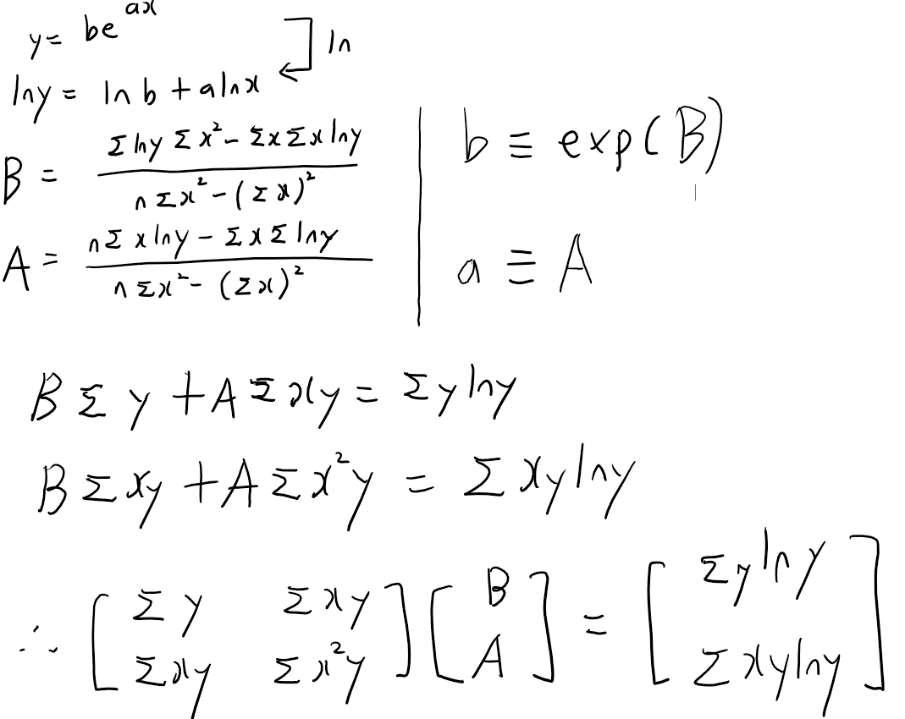 y = be^{ax}
ln
ln y = ln b + a ln x
B = \frac{Σ ln y Σ x² - Σx Σ x ln y}{n Σ x² - (Σ x)²}
A = \frac{n Σ x ln y - Σ x Σ ln y}{n Σ x² - (Σ x)²}
b ≡ exp(B)
a ≡ A
B Σ y + A Σ xy = Σ y ln y
B Σ xy + A Σ x² y = Σ xy ln y
∴ [Σ y Σ xy; Σ xy Σ x² y] [B; A] = [Σ y ln y; Σ xy ln y]